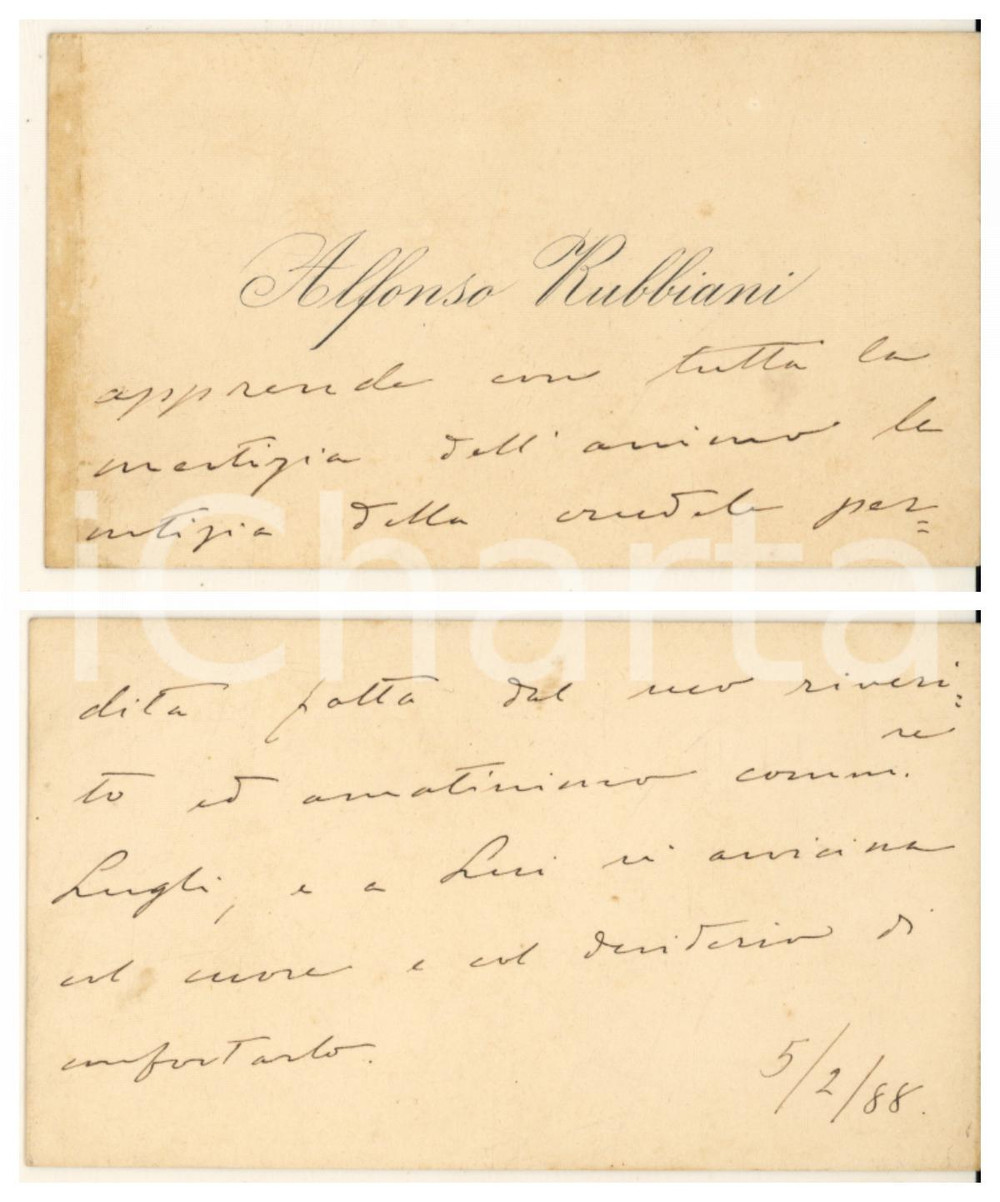 Alfonso Rubbiani
apprende con tutta la
mestizia dell'animo la
notizia della crudele per=
dita fatta dal suo riveri=
to ed amatissimo comm.re
Lugli, e a Lui si avvicina
col cuore e col desiderio di
confortarlo.
5/2/88.
iCharta